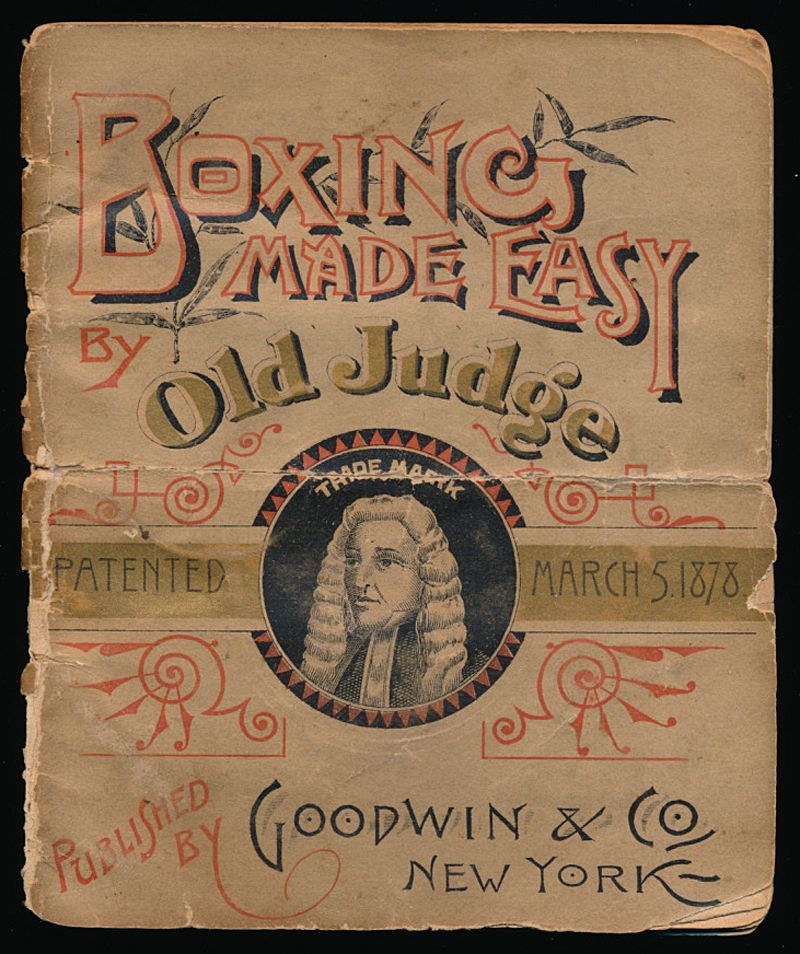 BOXING
MADE EASY
BY
Old Judge
TRADE MARK
PATENTED MARCH 5. 1878.
PUBLISHED
BY
GOODWIN & CO
NEW YORK